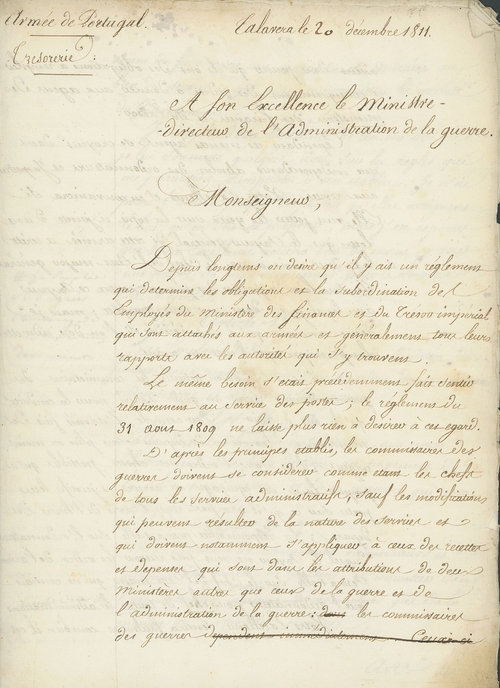 Armée de Portugal.
Talavera le 20 décembre 1811.
Tresorerie.
A Son Excellence le Ministre-
-directeur de l'Administration de la guerre.
Monseigneur,
Depuis longtems on desire qu'il y ait un réglement
qui determine les obligations et la subordination des
Employés du Ministre des finances et du Tresor imperial
qui sont attachés aux armées et généralement tous leurs
rapports avec les autorités qui s'y trouvent.
Le même besoin s'etait précédemment fait sentir
relativement au service des postes; le réglement du
31 aout 1809 ne laisse plus rien à desirer à cet egard.
D'après les principes etablis, les commissaires des
guerres doivent se considérer comme etant les chefs
de tous les services administratifs, sauf les modifications
qui peuvent résulter de la nature des services et
qui doivent notamment s'appliquer à ceux des recettes
et depenses qui sont dans les attributions de deux
Ministeres autres que ceux de la guerre et de
l'administration de la guerre: dont les commissaires
des guerres dependent immédiatement Ceux-ci